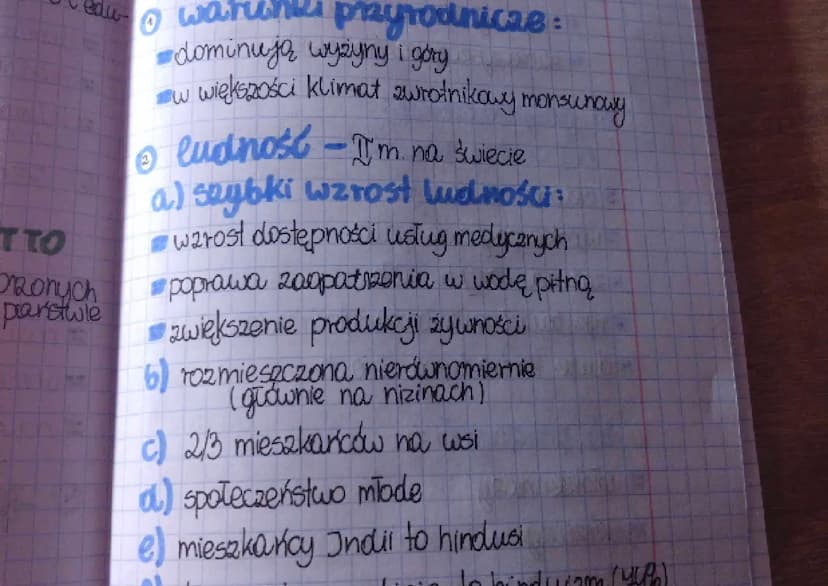 edu-
TTO
państwie
1 warunki przyrodnicze:
dominują wyżyny i góry
w większości klimat zwrotnikowy monsunowy
2 ludność - II m. na świecie
a) szybki wzrost ludności:
wzrost dostępności usług medycznych
poprawa zaopatrzenia w wodę pitną
zwiększenie produkcji żywności
b) rozmieszczona nierównomiernie
(głównie na nizinach)
c) 2/3 mieszkańców na wsi
d) społeczeństwo młode
e) mieszkańcy Indii to hindusi
to hinduizm